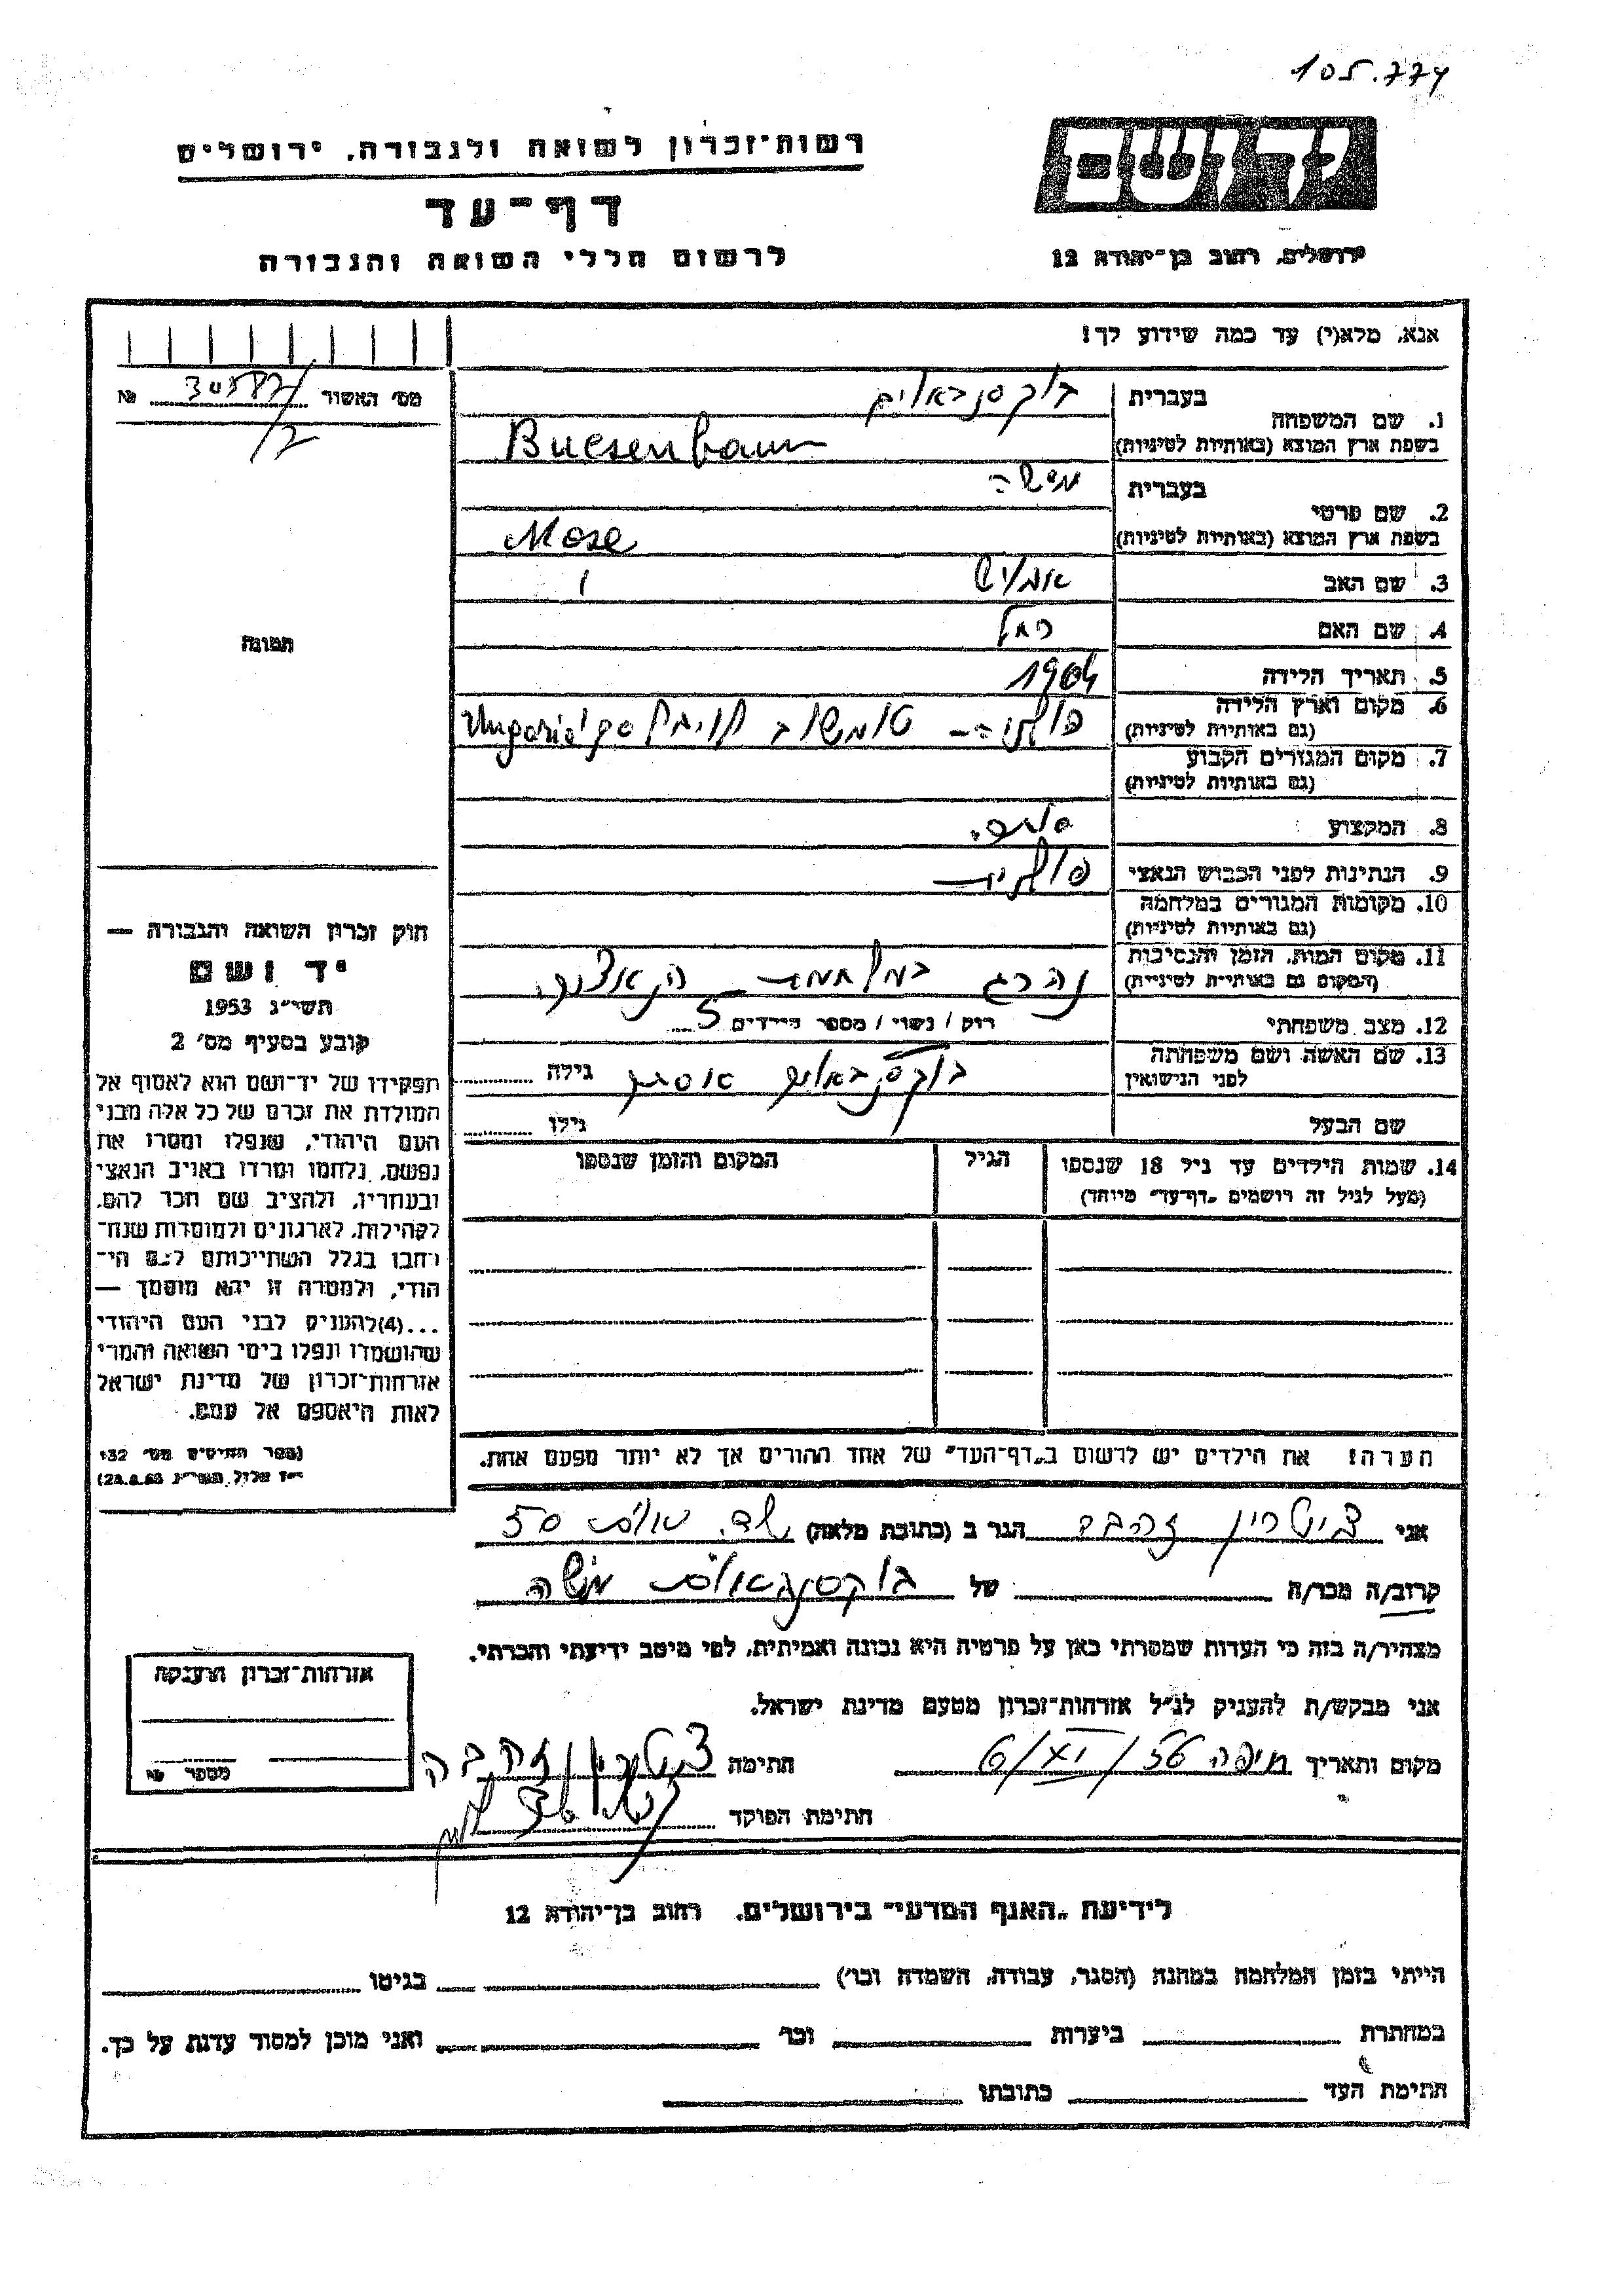 105.774
יד ושם
ירושלים, רחוב בן־יהודא 12
רשות־זכרון לשואה ולגבורה, ירושלים
דף־עד
לרשום חללי השואה והגבורה
אנא, מלא(י) עד כמה שידוע לך!
מס׳ האשור № 30587/
/2
תמונה
1. שם המשפחה
בעברית בוקסנבאוים
בשפת ארץ המוצא (באותיות לטיניות) Bucsenbaum
2. שם פרטי
בעברית משה
בשפת ארץ המוצא (באותיות לטיניות) Mose
3. שם האב
4. שם האם רחל
5. תאריך הלידה 1904
6. מקום וארץ הלידה
(גם באותיות לטיניות) פולניה —
7. מקום המגורים הקבוע
(גם באותיות לטיניות)
8. המקצוע סוחר.
9. הנתינות לפני הכבוש הנאצי פולנית
10. מקומות המגורים במלחמה
(גם באותיות לטיניות)
11. מקום המות, הזמן והנסיבות
(המקום גם באותיות לטיניות) נהרג במלחמת הנאצים.
12. מצב משפחתי רוק / נשוי / מספר הילדים 5
13. שם האשה ושם משפחתה
לפני הנישואין בוקסנבאוים אסתר גילה
שם הבעל גילו
14. שמות הילדים עד גיל 18 שנספו הגיל המקום והזמן שנספו
(מעל לגיל זה רושמים „דף־עד״ מיוחד)
הערה! את הילדים יש לרשום ב„דף־העד״ של אחד ההורים אך לא יותר מפעם אחת.
חוק זכרון השואה והגבורה —
יד ושם
תשי״ג 1953
קובע בסעיף מס׳ 2
תפקידו של יד־ושם הוא לאסוף אל
המולדת את זכרם של כל אלה מבני
העם היהודי, שנפלו ומסרו את
נפשם, נלחמו ומרדו באויב הנאצי
ובעוזריו, ולהציב שם וזכר להם,
לקהילות, לארגונים ולמוסדות שנח־
רבו בגלל השתייכותם לעם הי־
הודי, ולמטרה זו יהא מוסמך —
...(4) להעניק לבני העם היהודי
שהושמדו ונפלו בימי השואה והמרי
אזרחות־זכרון של מדינת ישראל
לאות היאספם אל עמם.
(ספר החוקים מס׳ 132
אני ציטרין זהבה הגר ב (כתובת מלאה) 50
קרוב/ה מכר/ה של בוקסנבאוים משה
מצהיר/ה בזה כי העדות שמסרתי כאן על פרטיה היא נכונה ואמיתית, לפי מיטב ידיעתי והכרתי.
אני מבקש/ת להעניק לנ״ל אזרחות־זכרון מטעם מדינת ישראל.
מקום ותאריך חיפה 6/XI/56 חתימה ציטרין זהבה
חתימת הפוקד
אזרחות־זכרון הוענקה
מספר №
לידיעת „האגף המדעי״ בירושלים, רחוב בן־יהודא 12
הייתי בזמן המלחמה במחנה (הסגר, עבודה, השמדה וכו׳) בגיטו
במחתרת ביערות וכו׳ ואני מוכן למסור עדות על כך.
חתימת העד כתובתו